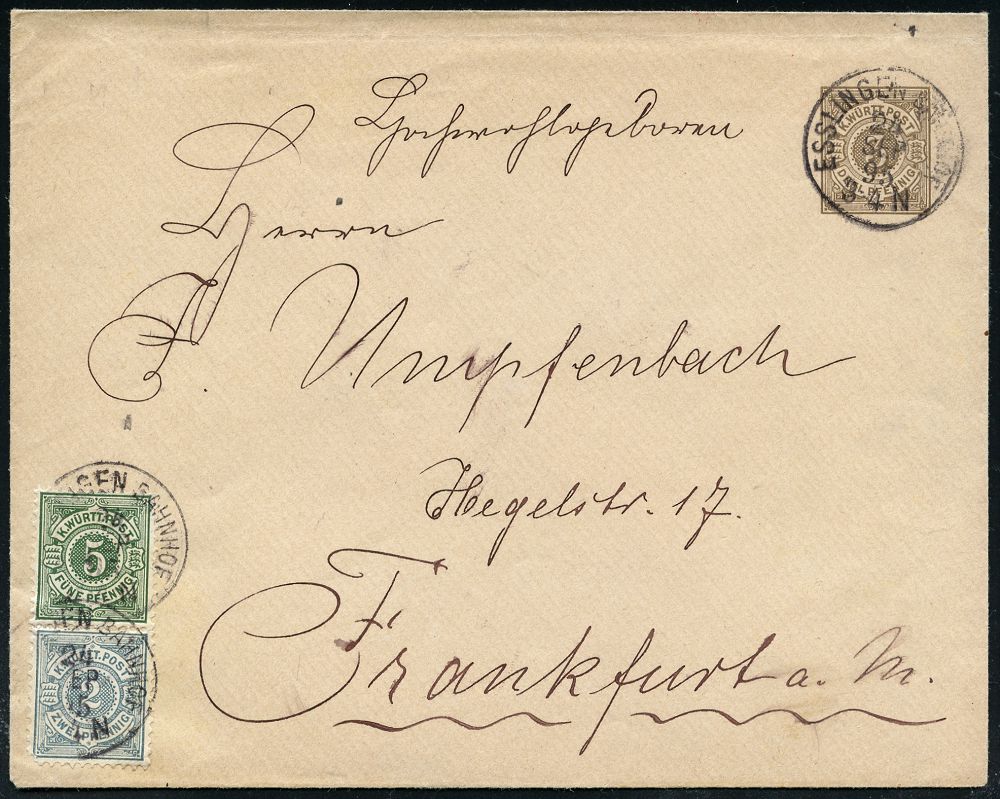 Hochwohlgeboren
Herrn
F. Umpfenbach
Hegelstr. 17.
Frankfurt a. M.
ESSLINGEN BAHNHOF
24
SEP
95
3 4 N
K. WÜRTT. POST
3
DREI PFENNIG
INGEN BAHNHOF
K. WÜRTT. POST
5
FÜNF PFENNIG
EN BAHNHOF
24
EP
5
4 N
K. WÜRTT. POST
2
ZWEI PFENNIG